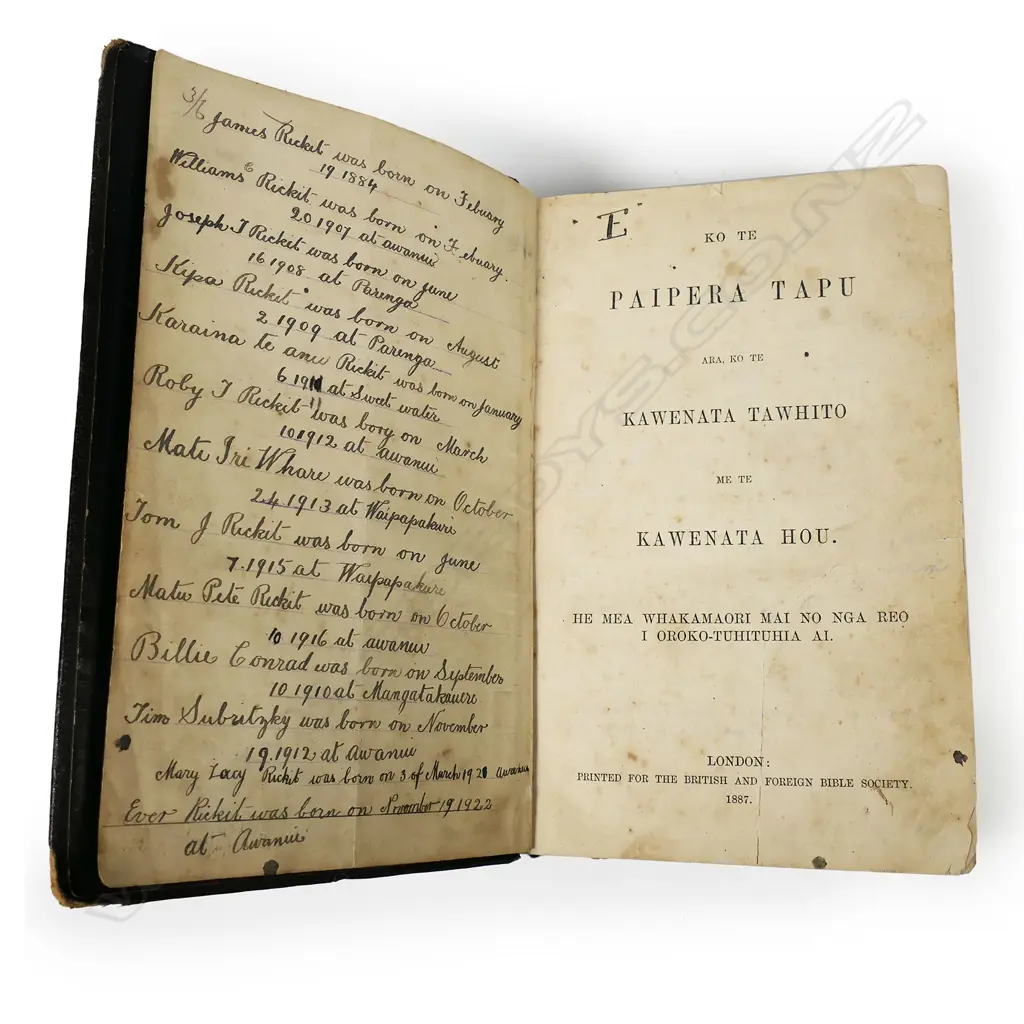 3/6
James Rickit was born on Febuary
19 1884
Williams Rickit was born on Febuary.
20 1907 at awanui
Joseph T Rickit was born on june
16 1908 at Parenga
Kipa Rickit was born on August
2 1909 at Parenga
Karaina te anu Rickit was born on january
6 1911 at Sweet water
Roby T Rickit was bory on March
10 1912 at awanui
Mate Iri Whare was born on October
24.1913 at Waipapakuri
Tom J Rickit was born on june
7.1915 at Waipapakuri
Matu Pete Rickit was born on October
10 1916 at awanui
Billie Conrad was born on September
10 1910 at Mangatakauere
Tim Subritzky was born on November
19.1912 at Awanui
Mary Lacy Rickit was born on 3 of March 1921 awanui
Ever Rickit was born on November 19 1922
at Awanui
E
KO TE
PAIPERA TAPU
ARA, KO TE
KAWENATA TAWHITO
ME TE
KAWENATA HOU.
HE MEA WHAKAMAORI MAI NO NGA REO
I OROKO-TUHITUHIA AI.
LONDON:
PRINTED FOR THE BRITISH AND FOREIGN BIBLE SOCIETY.
1887.